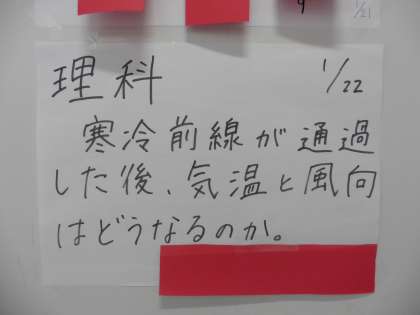 理科 1/22
寒冷前線が通過
した後、気温と風向
はどうなるのか。
1/21